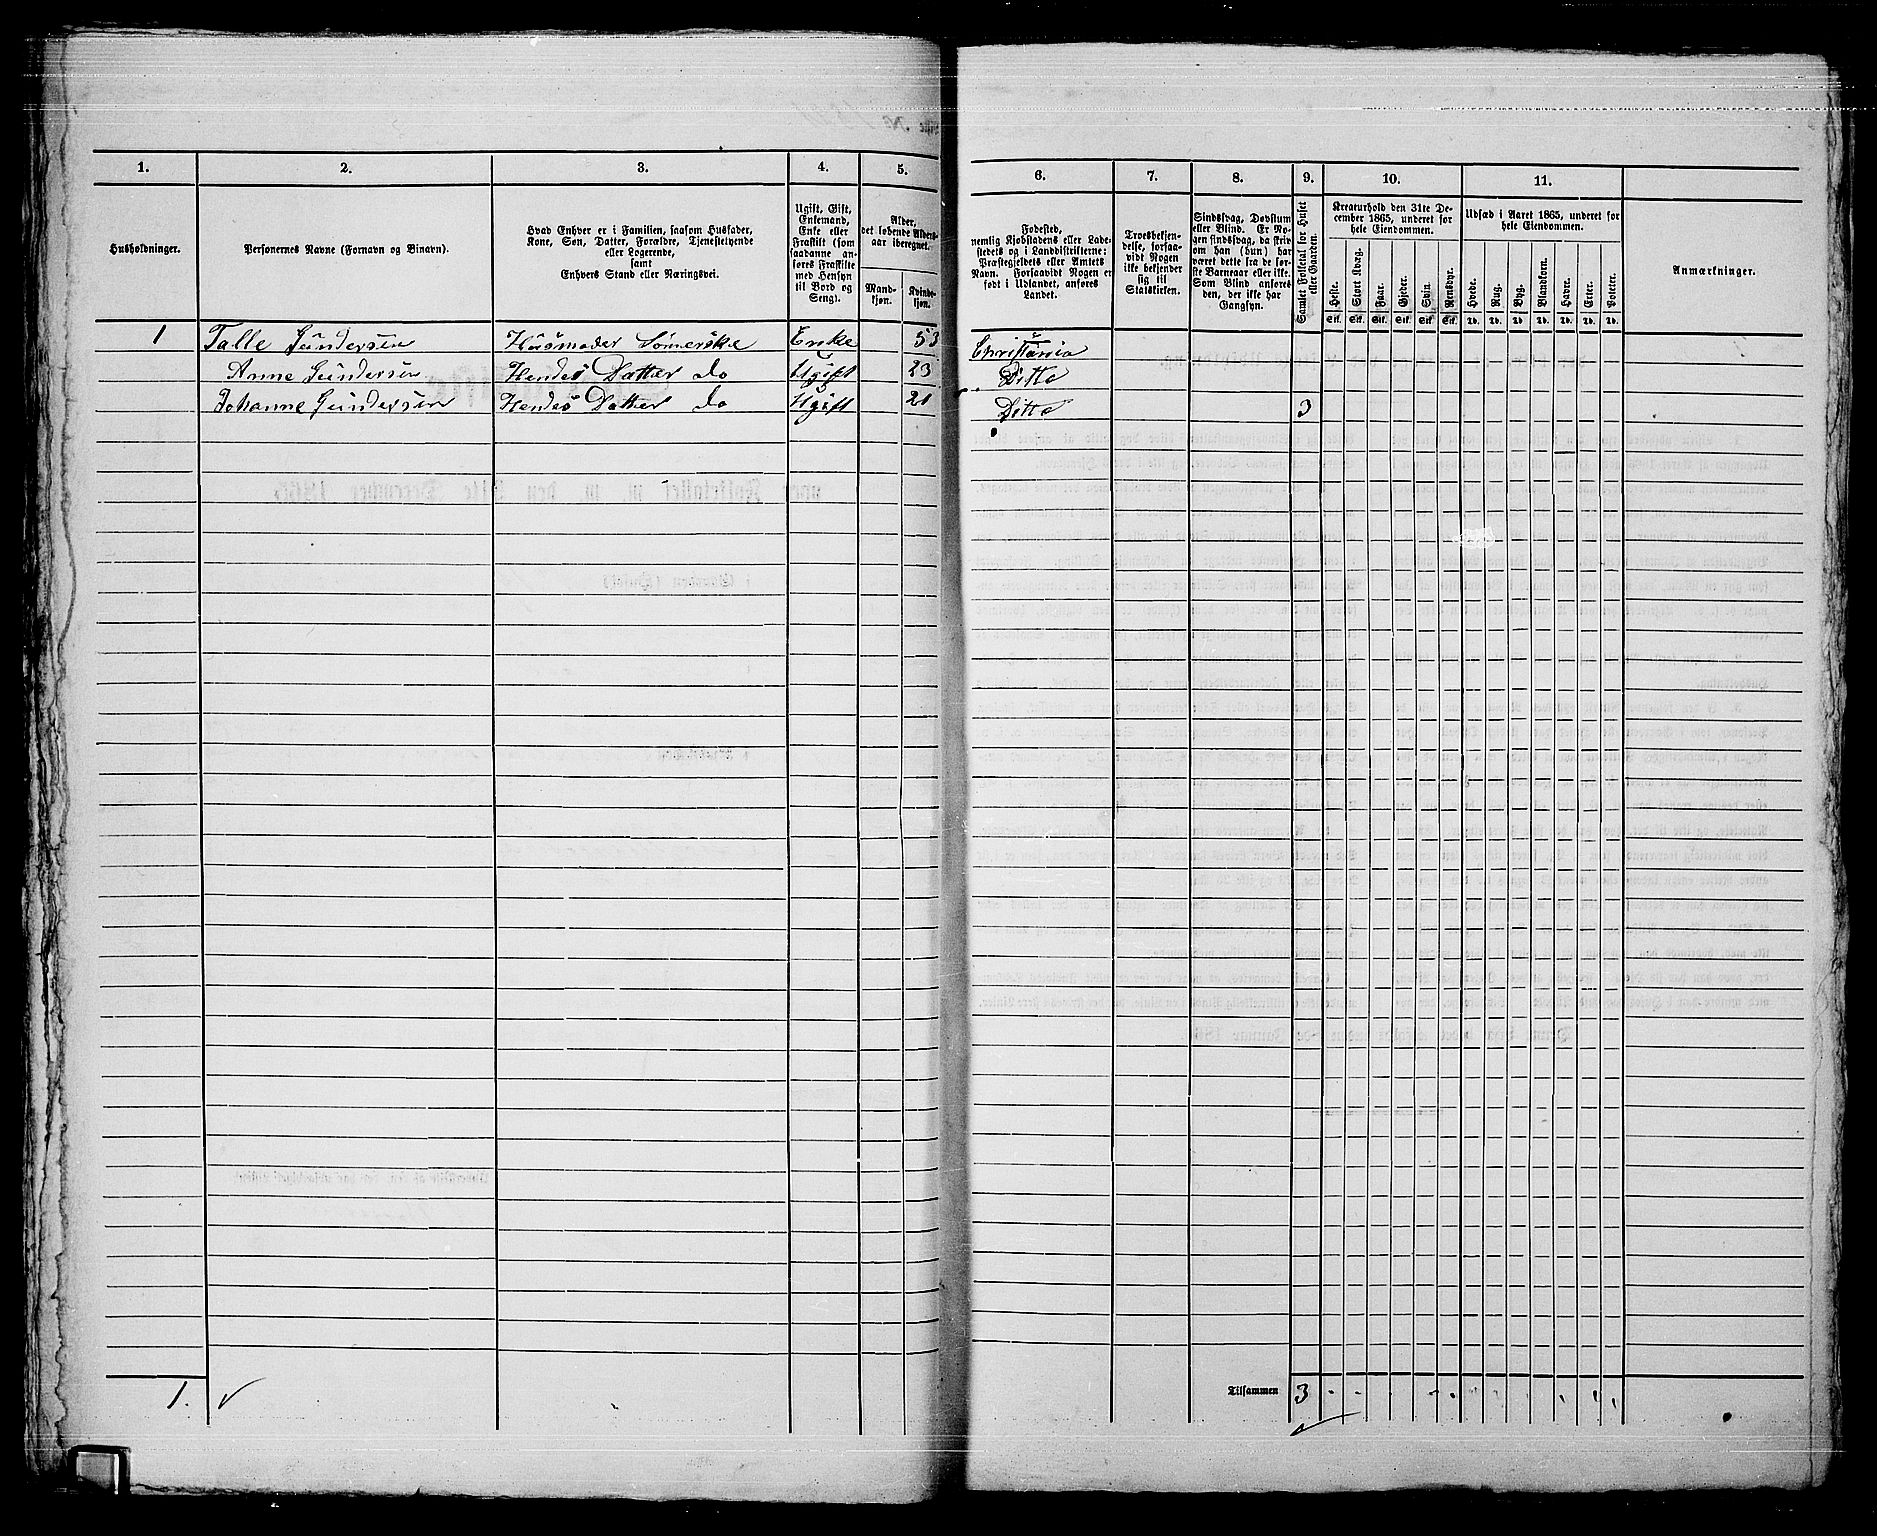 1.
2.
3.
4.
5.
Husholdninger.
Personernes Navne (Fornavn og Binavn).
Hvad Enhver er i Familien, saasom Husfader,
Kone, Søn, Datter, Forældre, Tjenestetyende
eller Logerende,
samt
Enhvers Stand eller Næringsvei.
Ugift, Gift,
Enkemand,
Enke eller
Fraskilt (som
saadanne an-
føres Fraskilte
med Hensyn
til Bord og
Seng).
Alder,
det løbende Alders-
aar iberegnet.
Mand-
kjøn.
Kvinde-
kjøn.
1 Talle Gundersen Husmoder Sømerske Enke 53
Anne Gundersen Hendes Datter do Ugift 23
Johanne Gundersen Hendes Datter do Ugift 21
1.
6.
7.
8.
9.
10.
11.
Fødested,
nemlig Kjøbstadens eller Lade-
stedets og i Landdistrikterne:
Præstegjeldets eller Amtets
Navn. Forsaavidt Nogen er
født i Udlandet, anføres
Landet.
Troesbekjen-
delse, forsaa-
vidt Nogen
ikke bekjender
sig til
Statskirken.
Sindssvag, Døvstum
eller Blind. Er No-
gen sindssvag, da skriv
om han (hun) har
været dette fra de før-
ste Barneaar eller ikke.
Som Blind anføres
den, der ikke har
Gangsyn.
Samlet Folketal for Huset
eller Gaarden.
Kreaturhold den 31te De-
cember 1865, underet for
hele Eiendommen.
Heste.
Stort Kvæg.
Faar.
Gjeder.
Svin.
Rensdyr.
Stk. Stk. Stk. Stk. Stk. Stk.
Udsæd i Aaret 1865, underet for
hele Eiendommen.
Hvede.
Rug.
Byg.
Blandkorn.
Havre.
Erter.
Poteter.
Td. Td. Td. Td. Td. Td. Td.
Anmærkninger.
Christiania
Ditto
Ditto 3
Tilsammen 3